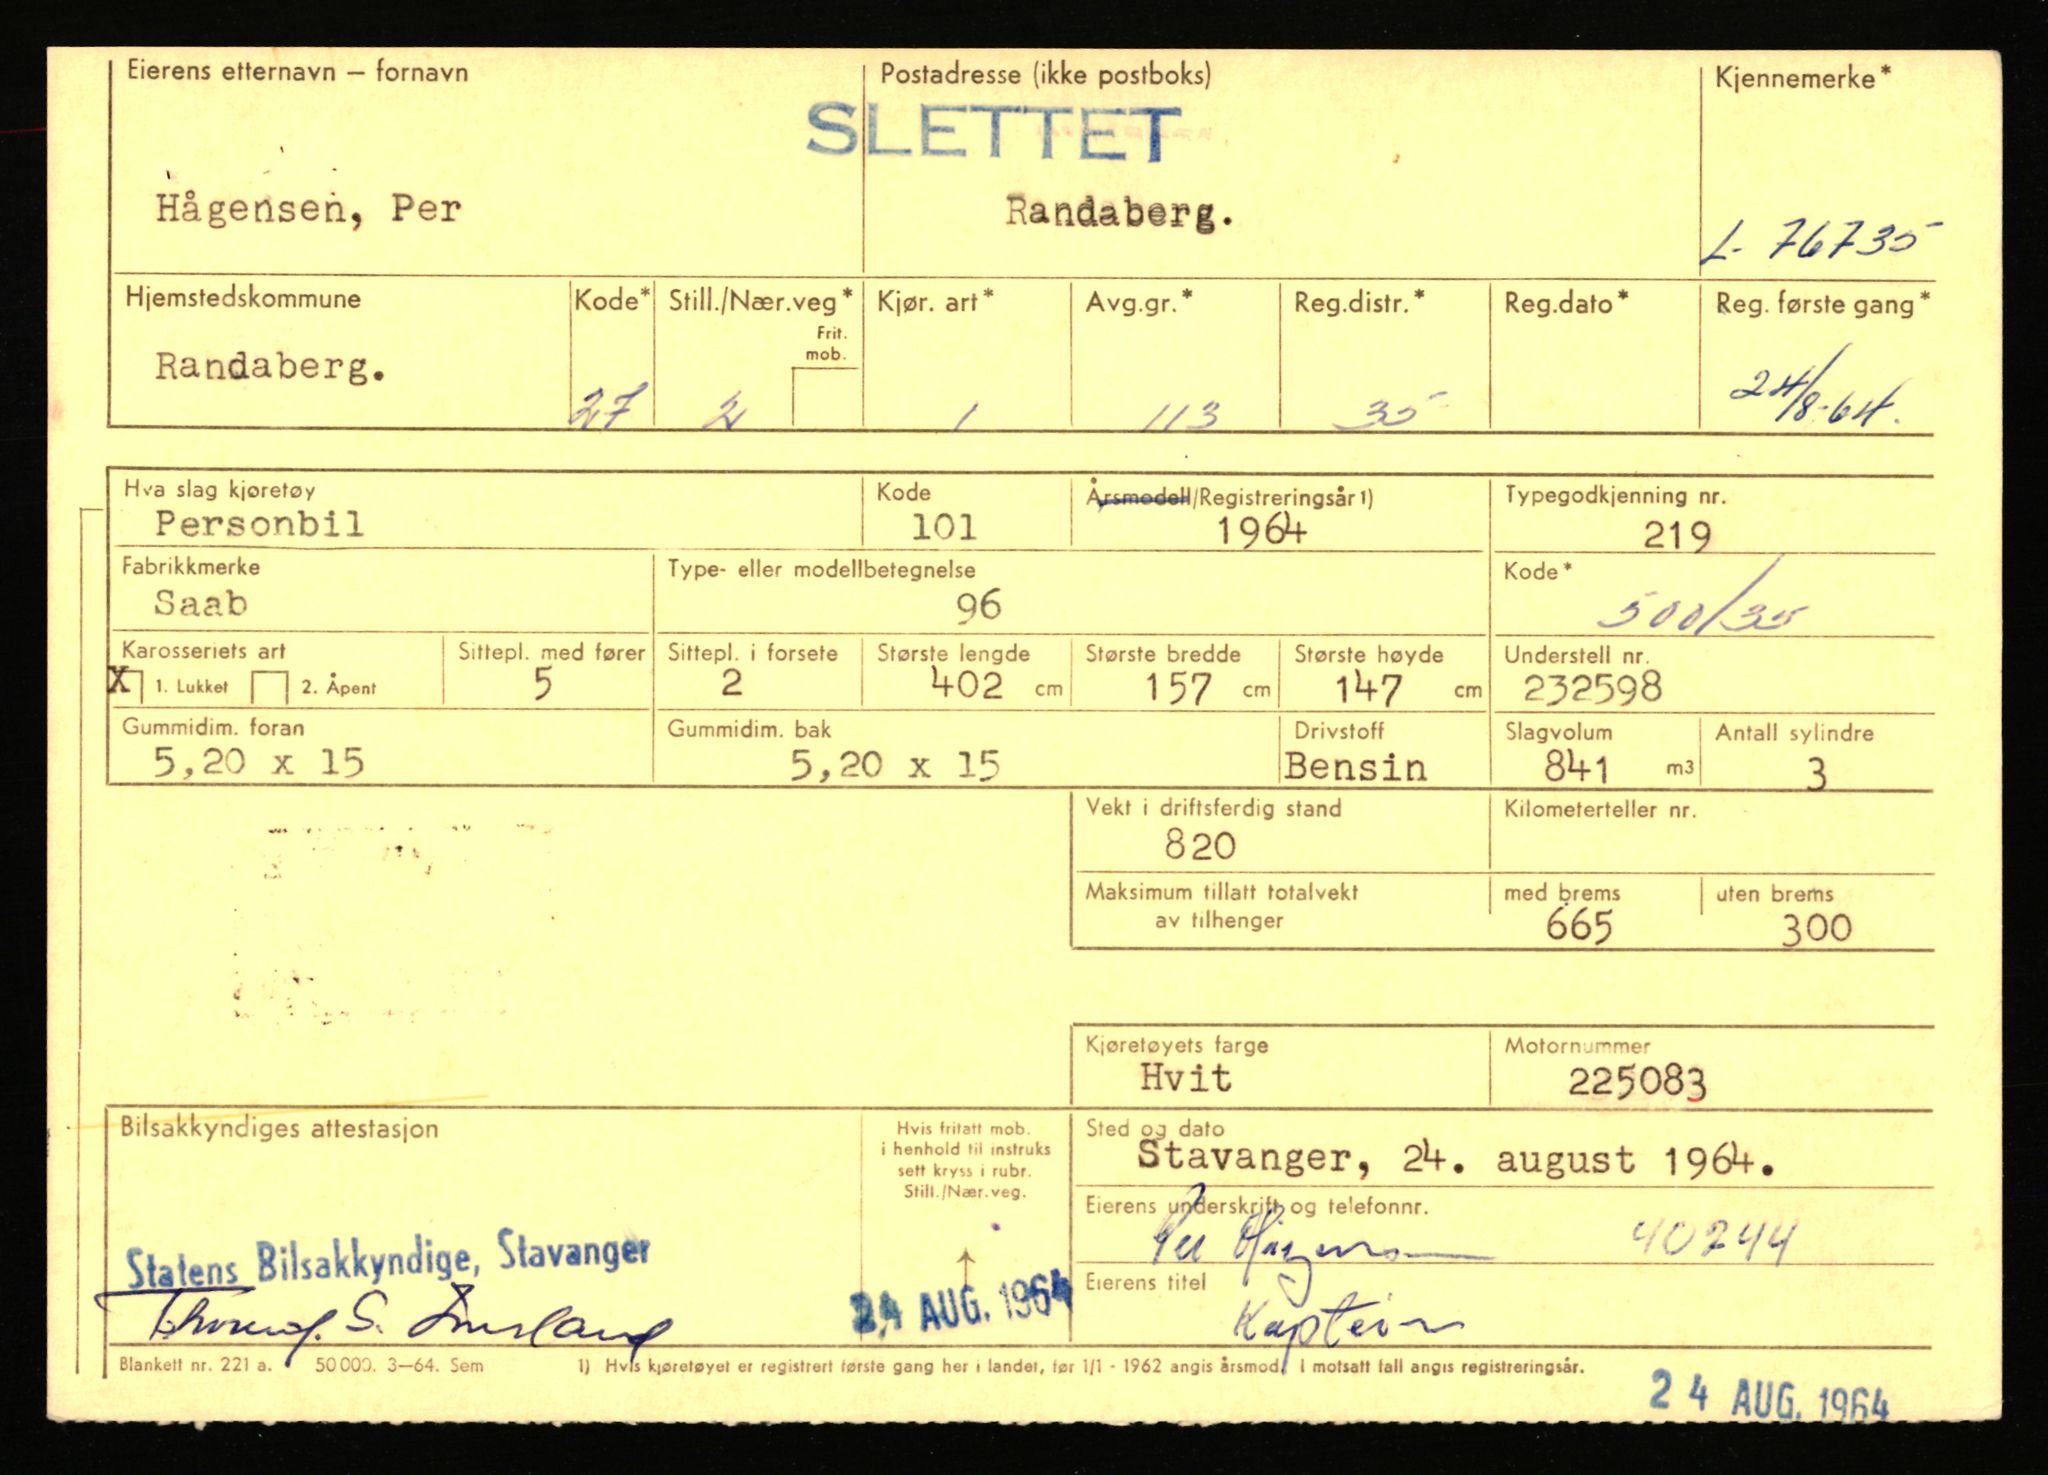 Eierens etternavn – fornavn
Postadresse (ikke postboks)
Kjennemerke*
SLETTET
Hågensen, Per
Randaberg.
L- 76735
Hjemstedskommune
Kode*
Still./Nær.veg*
Kjør. art*
Avg.gr.*
Reg.distr.*
Reg.dato*
Reg. første gang*
Frit.
mob.
Randaberg.
27
2
1
113
35
24/8-64.
Hva slag kjøretøy
Kode
Årsmodell/Registreringsår 1)
Typegodkjenning nr.
Personbil
101
1964
219
Fabrikkmerke
Type- eller modellbetegnelse
Kode*
Saab
96
500/35
Karosseriets art
Sittepl. med fører
Sittepl. i forsete
Største lengde
Største bredde
Største høyde
Understell nr.
X 1. Lukket
2. Åpent
5
2
402 cm
157 cm
147 cm
232598
Gummidim. foran
Gummidim. bak
Drivstoff
Slagvolum
Antall sylindre
5,20 x 15
5,20 x 15
Bensin
841 m3
3
Vekt i driftsferdig stand
Kilometerteller nr.
820
Maksimum tillatt totalvekt
av tilhenger
med brems
uten brems
665
300
Kjøretøyets farge
Motornummer
Hvit
225083
Bilsakkyndiges attestasjon
Hvis fritatt mob.
i henhold til instruks
sett kryss i rubr.
Still./Nær.veg.
Sted og dato
Stavanger, 24. august 1964.
Eierens underskrift og telefonnr.
Per Hågensen 40244
Statens Bilsakkyndige, Stavanger
Eierens titel
S.
24 AUG. 1964
Kaptein
Blankett nr. 221 a. 50 000. 3–64. Sem
1) Hvis kjøretøyet er registrert første gang her i landet, før 1/1 - 1962 angis årsmod. I motsatt fall angis registreringsår.
24 AUG. 1964